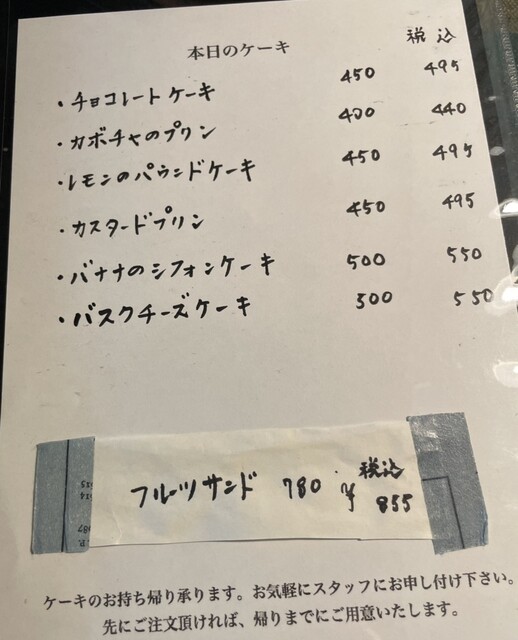 本日のケーキ 税込
・チョコレートケーキ 450 495
・カボチャのプリン 400 440
・レモンのパウンドケーキ 450 495
・カスタードプリン 450 495
・バナナのシフォンケーキ 500 550
・バスクチーズケーキ 500 550
フルーツサンド 780 税込 ¥855
ケーキのお持ち帰り承ります。お気軽にスタッフにお申し付け下さい。
先にご注文頂ければ、帰りまでにご用意いたします。